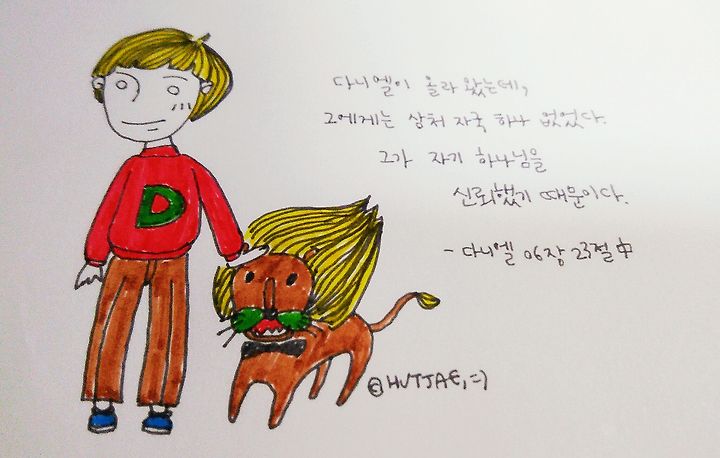 다니엘이 올라 왔는데,
그에게는 상처 자국 하나 없었다.
그가 자기 하나님을
신뢰했기 때문이다.
- 다니엘 06장 23절 中
D
©HUTJAE, =)